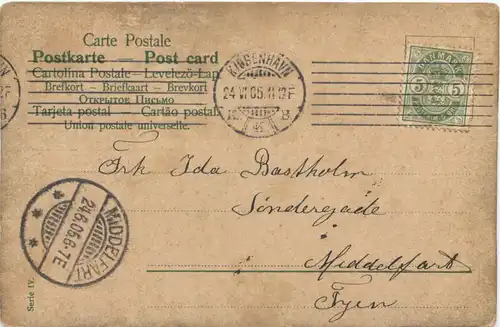 Carte Postale
Postkarte — Post card
Cartolina Postale — Levelező-Lap
Brefkort — Briefkaart — Brevkort
Открытое Письмо
Tarjeta postal — Cartão postal
Union postale universelle.
KJØBENHAVN
24 VI 06. 11-12 F
B.
DANMARK
5 5
Frk Ida Bastholm
Søndergade
Middelfart
Fyen
MIDDELFART
24.6.06.6-7E
Serie IV.